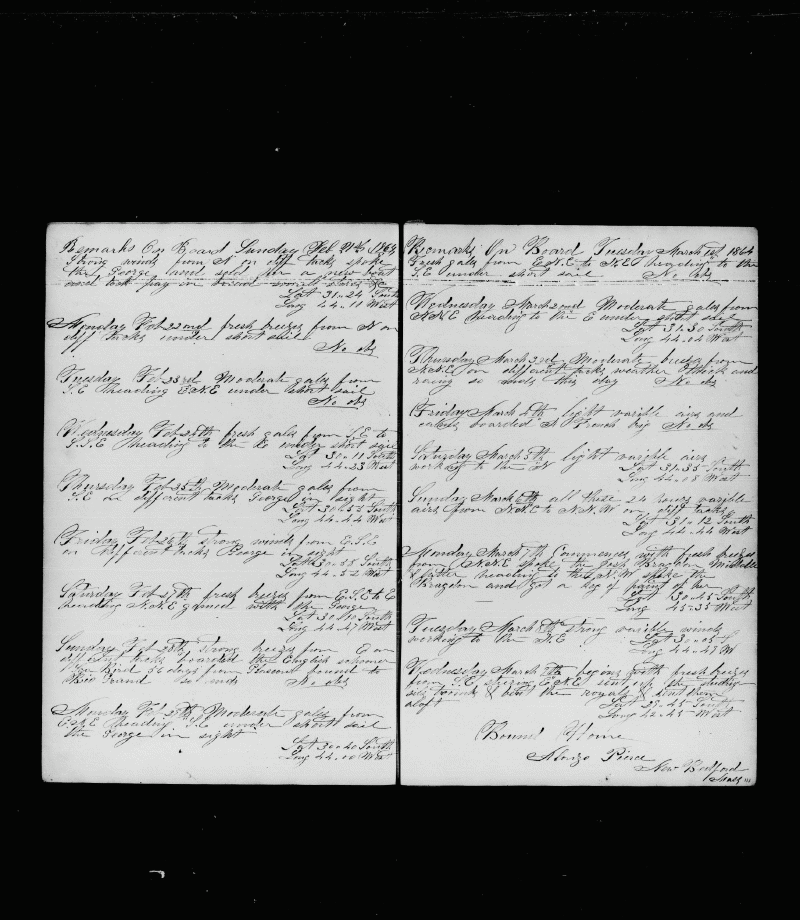 Remarks On Board Sunday Feb 21st 1864
Strong winds from N on diff tacks spoke
the George and sold for a new boat
and took pay in bread
Lat 31-24 South
Long 44-11 West
Monday Feb 22nd fresh breezes from N on
diff tacks under short sail
No obs
Tuesday Feb 23rd Moderate gales from
S.E heading E.N.E under short sail
No obs
Wednesday Feb 24th fresh gales from S.E to
S.S.E heading to the E under short sail
Lat 30-11 South
Long 44-23 West
Thursday Feb 25th Moderate gales from
S.E on different tacks George in sight
Lat 30-53 South
Long 44-44 West
Friday Feb 26th strong winds from E.S.E
on different tacks George in sight
Lat 30-55 South
Long 44-52 West
Saturday Feb 27th fresh breezes from E.S.E to E
heading N.N.E gamed with the George
Lat 30-40 South
Long 44-47 West
Sunday Feb 28th Strong breezes from E on
different tacks boarded the English schooner
36 days from bound to
Rio Grand so ends No obs
Monday Feb 29th Moderate gales from
E.N.E heading S.E under short sail
the George in sight
Lat 30-40 South
Long 44-00 West
Remarks On Board Tuesday March 1st 1864
Fresh gales from E.N.E to N.E heading to the
S.E under short sail No obs
Wednesday March 2nd Moderate gales from
N.N.E heading to the E under short sail
Lat 31-30 South
Long 44-04 West
Thursday March 3rd Moderate breezes from
N.N.E on different tacks weather thick and
rainy so ends this day No obs
Friday March 4th light varible airs and
calms boarded A French brig No obs
Saturday March 5th light varible airs
working to the N
Lat 31-35 South
Long 44-18 West
Sunday March 6th all these 24 hours varible
airs from N.N.E to N.N.W on diff tacks
Lat 31-12 South
Long 44-44 West
Monday March 7th Commences with fresh breezes
from N.N.E spoke the Josh Bragdon Middle
& latter heading to the N.W spoke the
Bragdon and got a keg of paint of her
Lat 30-45 South
Long 45-35 West
Tuesday March 8th strong varible winds
working to the N.E Lat 31-05 S
Long 44-47 W
Wednesday March 9th begins with fresh breezes
from S.E steering E.N.E sent up the studding
sail booms & bent the royals & sent them
aloft Lat 29-45 South
Long 42-45 West
Bound Home
Alonzo Pierce
New Bedford
Mass